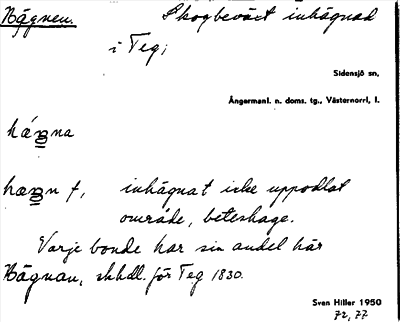 Hägnen. Skogbeväxt inhägnad
i Teg;
Sidensjö sn,
Ångermanl. n. doms. tg., Västernorrl, l.
inhägnat icke uppodlat
område, beteshage.
Varje bonde har sin andel här
Hägnan, skhdl. för Teg 1830.
Sven Hiller 1950
72, 77